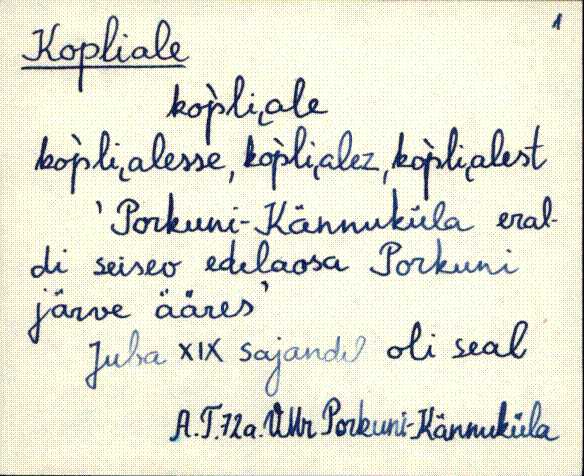 1
Kopliale
kop̀li‿ale
kop̀li‿alesse, kop̀li‿alez, kop̀li‿alest
'Porkuni-Kännuküla eral-
di seisev edelaosa Porkuni
järve ääres'
Juba XIX sajandil oli seal
A.T. 72a. VMr Porkuni-Kännuküla